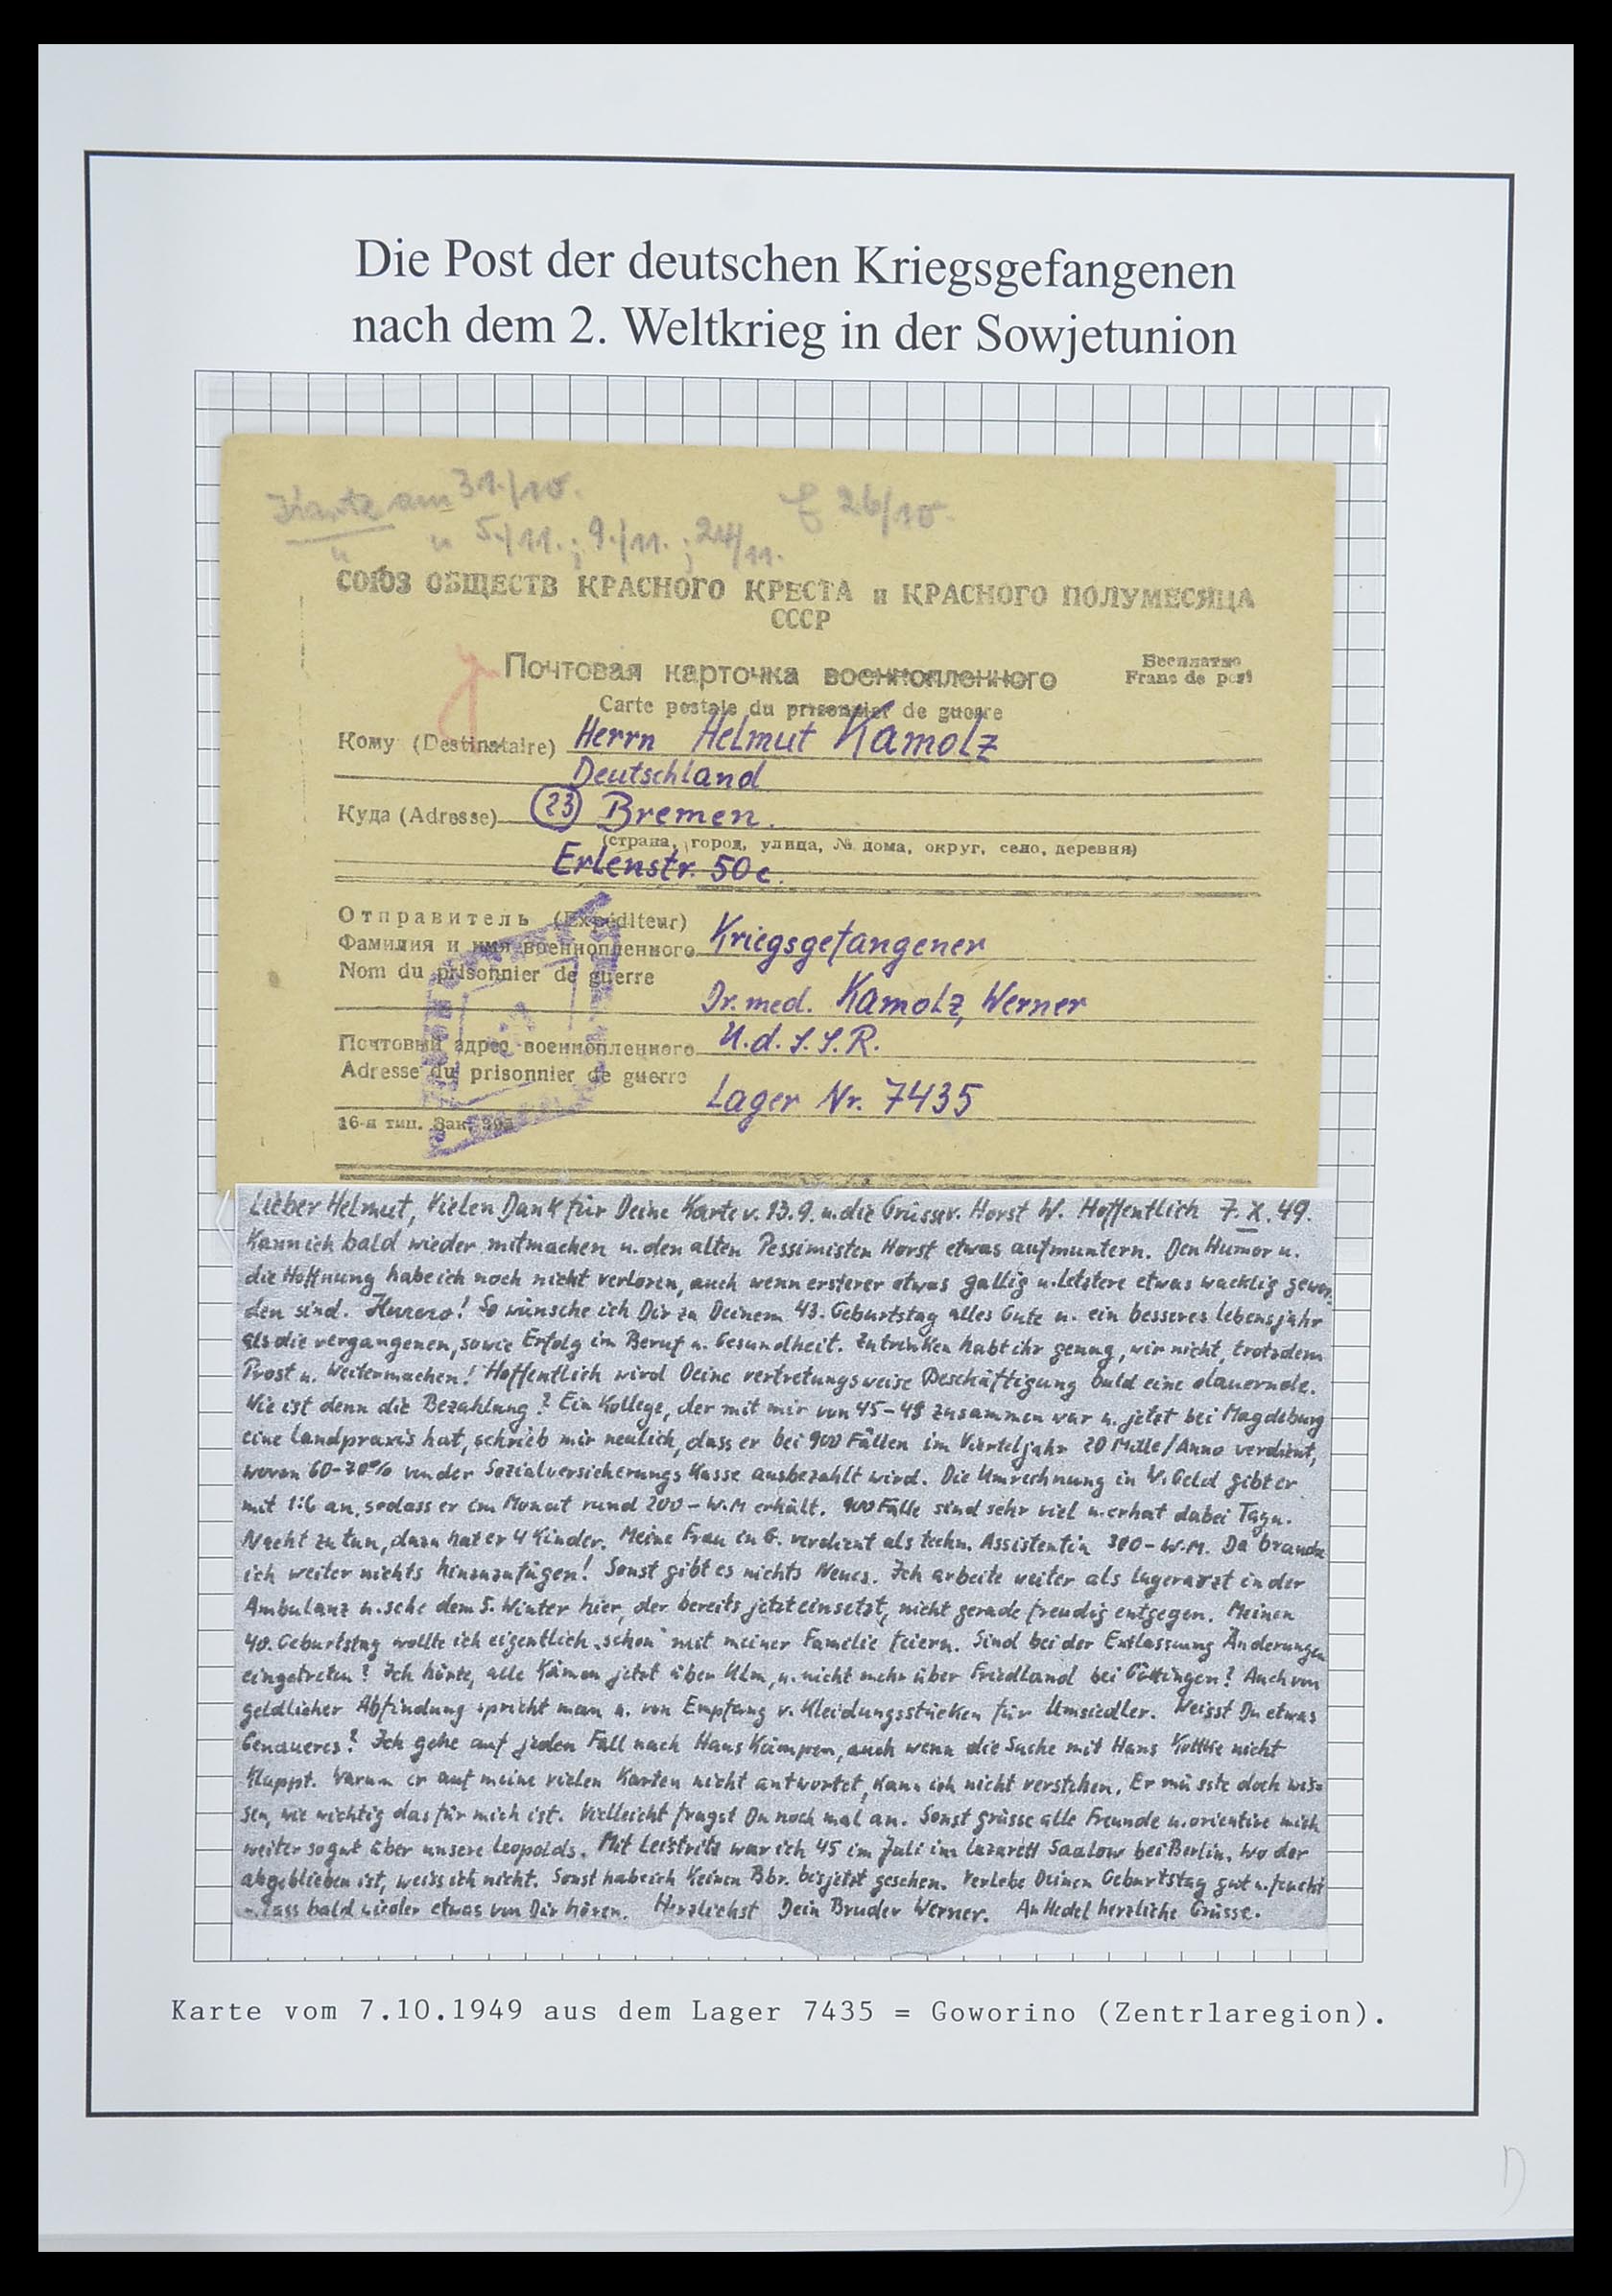 Die Post der deutschen Kriegsgefangenen
nach dem 2. Weltkrieg in der Sowjetunion
Karte am 31./10. 26/10.
" " 5./11.; 9./11.; 24/11.
СОЮЗ ОБЩЕСТВ КРАСНОГО КРЕСТА и КРАСНОГО ПОЛУМЕСЯЦА
СССР
Почтовая карточка военнопленного
Бесплатно
Franc de port
Carte postale du prisonnier de guerre
Кому (Destinataire) Herrn Helmut Kamolz
Deutschland
Куда (Adresse) 23 Bremen.
(страна, город, улица, № дома, округ, село, деревня)
Erlenstr. 50c.
Отправитель (Expéditeur)
Фамилия и имя военнопленного Kriegsgefangener
Nom du prisonnier de guerre
Dr. med. Kamolz, Werner
Почтовый адрес военнопленного U.d.S.S.R.
Adresse du prisonnier de guerre
Lager Nr. 7435
16-я тип. Зак.
Lieber Helmut, Vielen Dank für Deine Karte v. 13.9. u. die Grüsse v. Horst W. Hoffentlich 7.X.49.
Kann ich bald wieder mitmachen u. den alten Pessimisten Horst etwas aufmuntern. Den Humor u.
die Hoffnung habe ich noch nicht verloren, auch wenn ersterer etwas gallig u. letztere etwas wacklig gewor-
den sind. So wünsche ich Dir zu Deinem 43. Geburtstag alles Gute u. ein besseres Lebensjahr
als die vergangenen, sowie Erfolg im Beruf u. Gesundheit. Zu trinken habt ihr genug, wir nicht, trotzdem
Prost u. Weitermachen! Hoffentlich wird Deine vertretungsweise Beschäftigung bald eine dauernde.
Wie ist denn die Bezahlung? Ein Kollege, der mit mir von 45-48 zusammen war u. jetzt bei Magdeburg
eine Landpraxis hat, schrieb mir neulich, dass er bei 900 Fällen im Vierteljahr 20 Mille/Anno verdient,
wovon 60-70% von der Sozialversicherungs Kasse ausbezahlt wird. Die Umrechnung in W. Geld gibt er
mit 1:6 an, sodass er im Monat rund 200- W.M erhält. 900 Fälle sind sehr viel u. er hat dabei Tag u.
Nacht zu tun, dazu hat er 4 Kinder. Meine Frau in G. verdient als techn. Assistentin 300- W.M. Da brauche
ich weiter nichts hinzuzufügen! Sonst gibt es nichts Neues. Ich arbeite weiter als Lagerarzt in der
Ambulanz u. sehe dem 5. Winter hier, der bereits jetzt einsetzt, nicht gerade freudig entgegen. Meinen
40. Geburtstag wollte ich eigentlich „schon" mit meiner Familie feiern. Sind bei der Entlassung Änderungen
eingetreten? Ich hörte, alle kämen jetzt über Ulm, u. nicht mehr über Friedland bei Göttingen? Auch von
geldlicher Abfindung spricht man u. von Empfang v. Kleidungsstücken für Umsiedler. Weisst Du etwas
Genaueres? Ich gehe auf jeden Fall nach Haus Kämpen, auch wenn die Sache mit Hans Kottke nicht
klappt. Warum er auf meine vielen Karten nicht antwortet, kann ich nicht verstehen. Er müsste doch wis-
sen, wie wichtig das für mich ist. Vielleicht fragst Du noch mal an. Sonst grüsse alle Freunde u. orientire mich
weiter so gut über unsere Leopolds. Mit Leistritz war ich 45 im Juli im Lazarett Saalow bei Berlin. Wo der
abgeblieben ist, weiss ich nicht. Sonst habe ich keinen Bbr. bis jetzt gesehen. Verlebe Deinen Geburtstag gut u. feucht
- Lass bald wieder etwas von Dir hören. Herzlichst Dein Bruder Werner. An Hedel herzliche Grüsse.
Karte vom 7.10.1949 aus dem Lager 7435 = Goworino (Zentrlaregion).